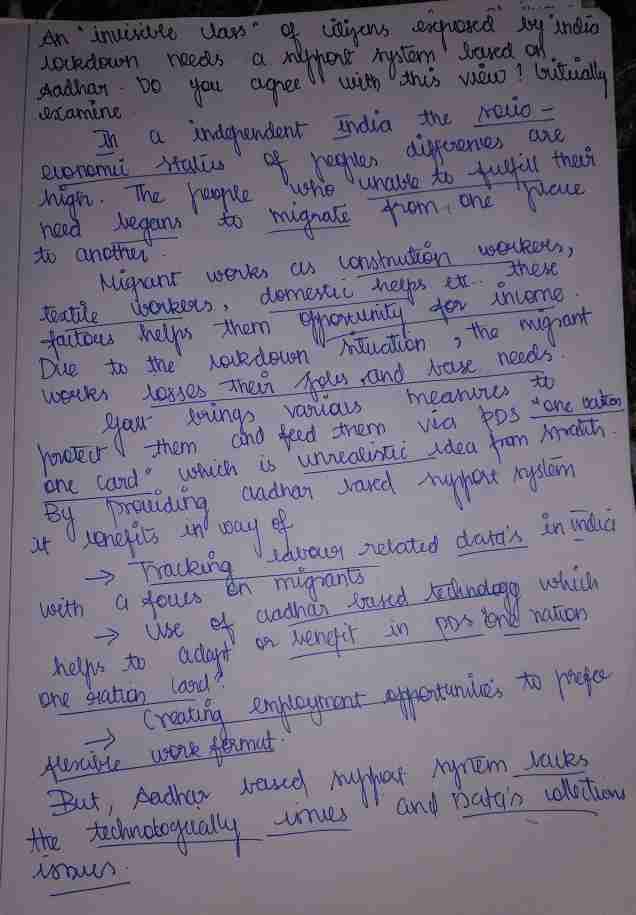 An "invisible class" of citizens exposed by india
lockdown needs a support system based on
aadhar. Do you agree with this view? Critically
examine.
In a independent India the socio-
economic status of peoples differences are
high. The people who unable to fulfill their
need begans to migrate from one place
to another.
Migrant works as constrution workers,
textile workers, domestic helps etc. these
factors helps them opportunity for income.
Due to the lockdown situation, the migrant
works losses their jobs and base needs.
Govt brings various measures to
protect them and feed them via PDS "one nation
one card" which is unrealistic idea from
By providing aadhar based support system
it benefits in way of
→ Tracking labour related data's in india
with a focus on migrants
→ Use of aadhar based technology which
helps to adapt or benefit in PDS "one nation
one ration card".
→ Creating employment opportunities to prefer
flexible work format.
But, Aadhar based support system lacks
the technologically issues and Data's collections
issues.